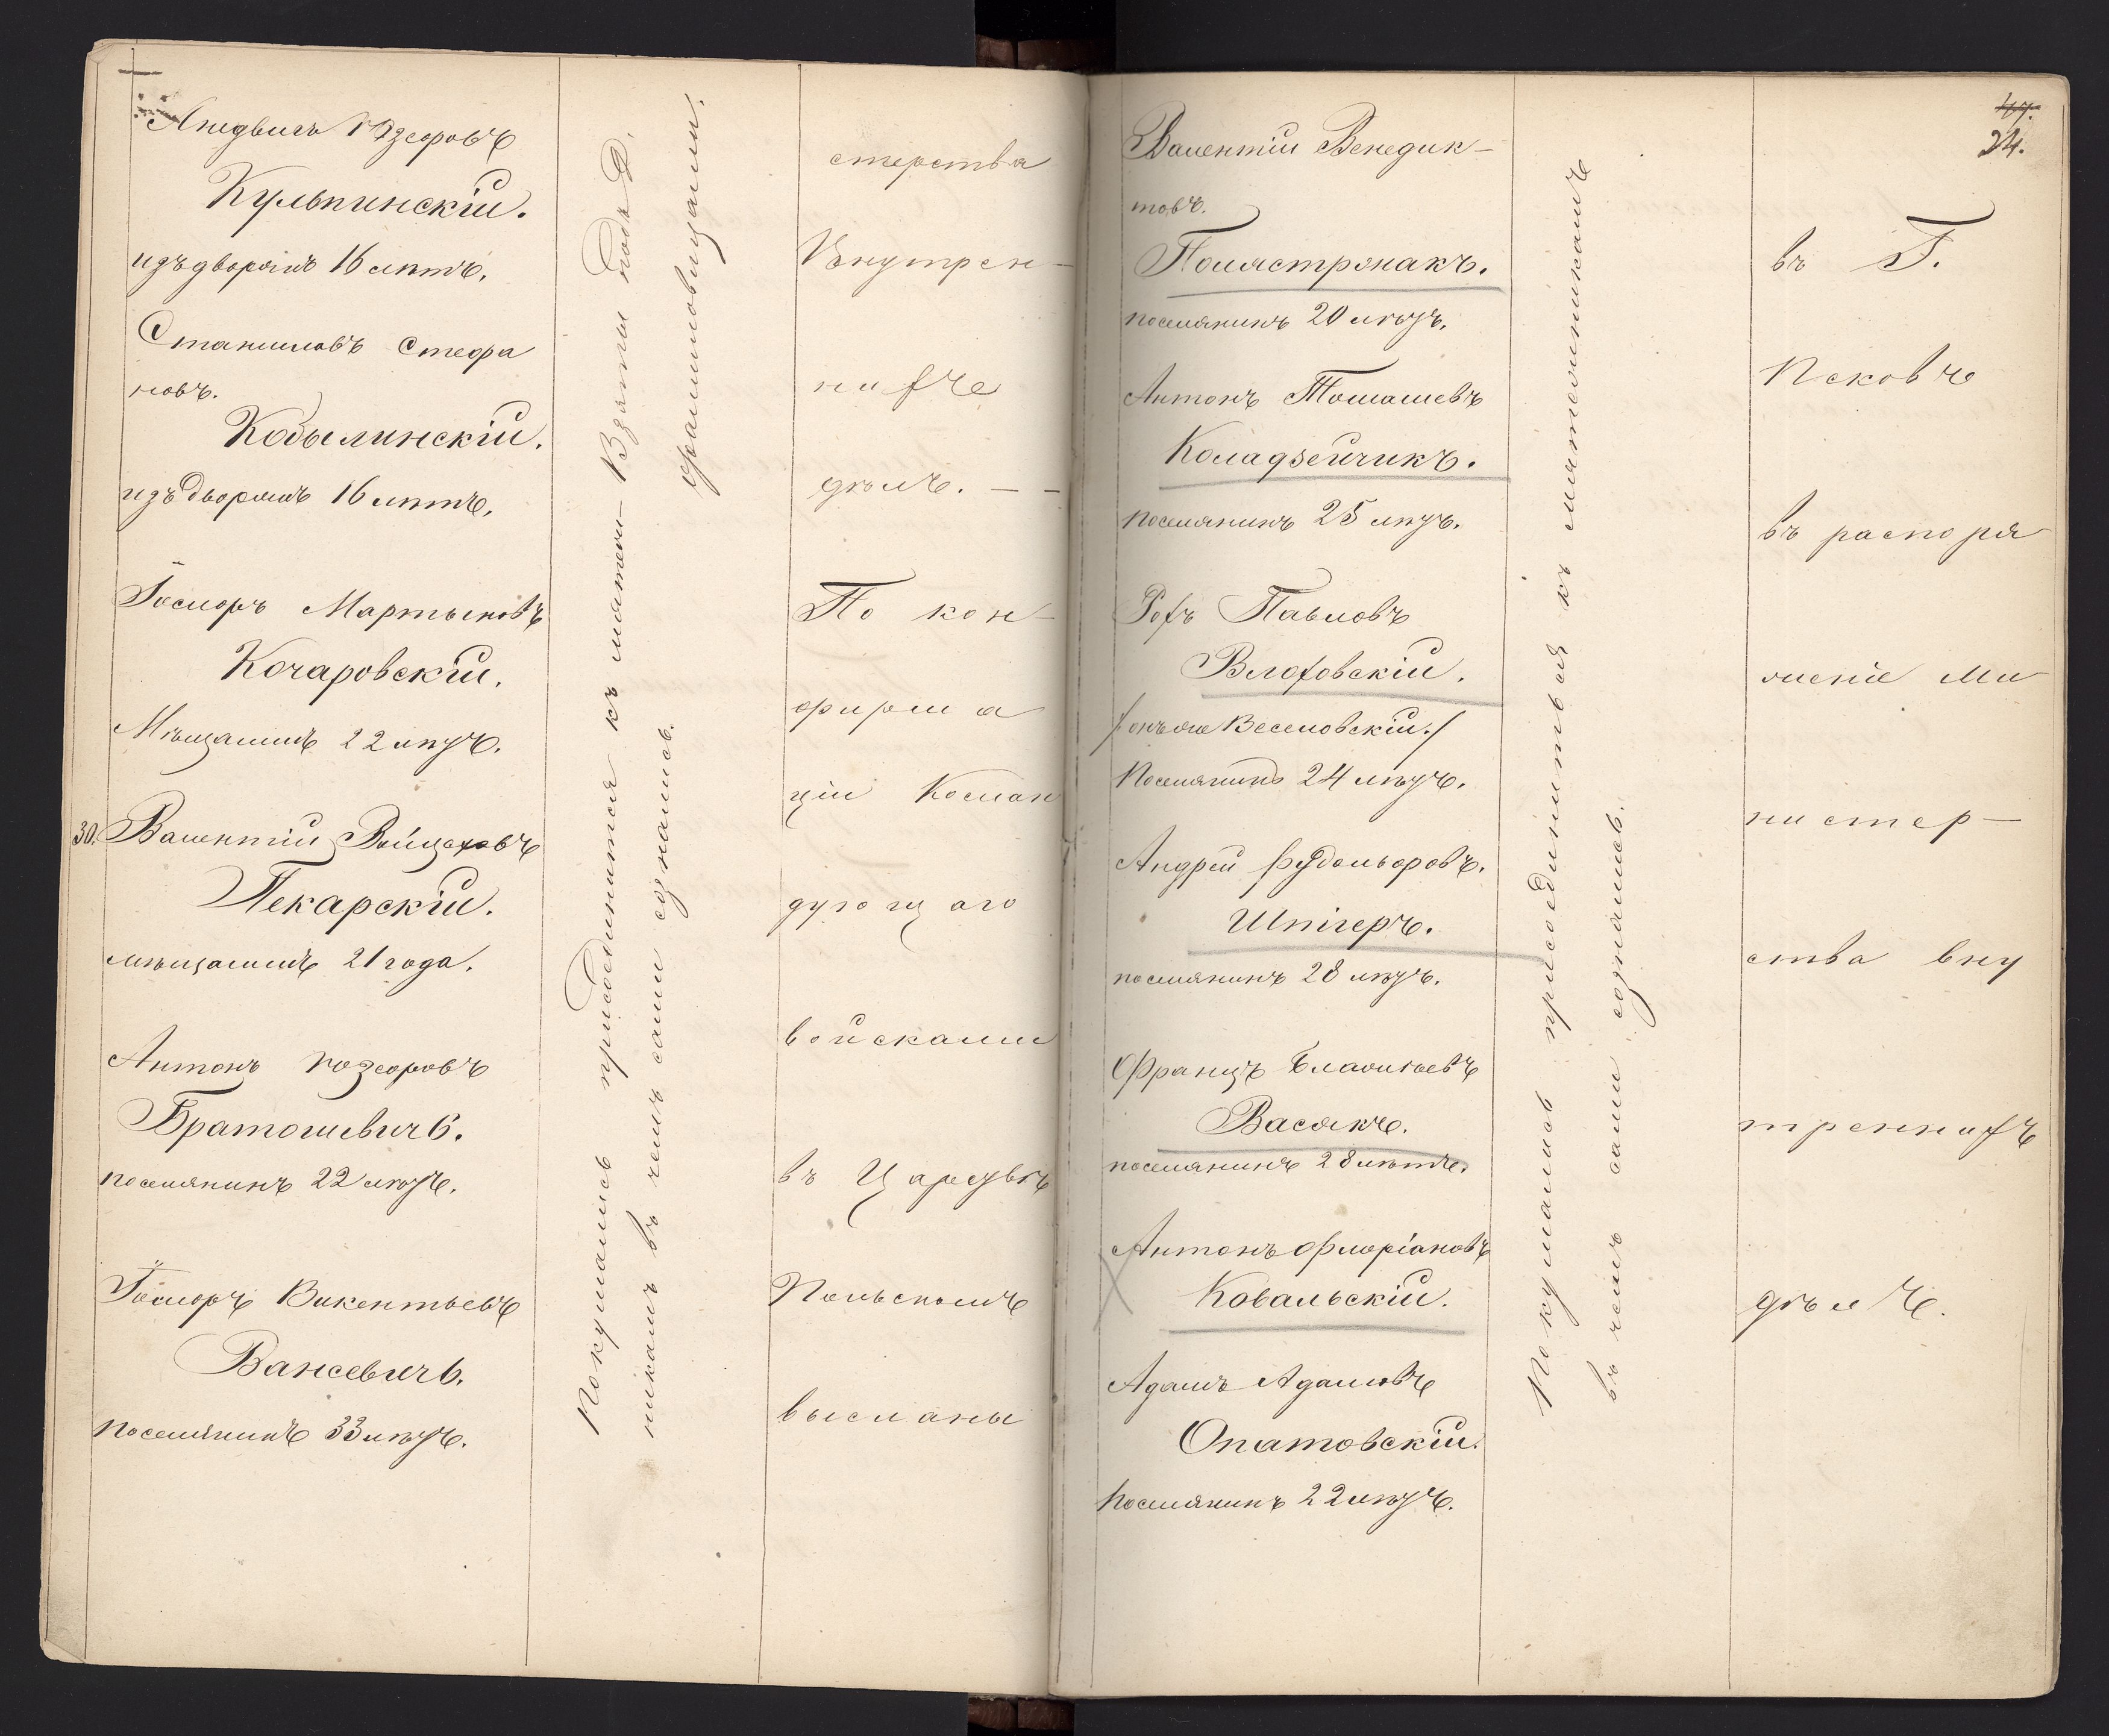 Людвигъ Юзефовъ
Кульпинскій.
изъ дворянъ 16 лѣтъ.
Станиславъ Стефа
новъ.
Кобылинскій.
изъ дворянъ 16 лѣтъ.
Мартыновъ
Кочаровскій.
Мѣщанинъ 22 лѣтъ.
30. Валентій Войцеховъ
Пекарскій.
мѣщанинъ 21 года.
Антонъ Юзефовъ
Братошевичъ.
поселянинъ 22 лѣтъ.
Викентьевъ
Вансевичъ.
поселянинъ 33 лѣтъ.
Покушались присоединится къ мятеж-
никамъ въ чемъ сами сознались.
Взяты подъ Д.
Франполовицами.
стерства
Внутрен-
нихъ
дѣлъ. - -
По кон-
фирма
ціи Коман
дующаго
войсками
въ Царствѣ
Польскомъ
высланы
47.
24.
Валентій Венедик-
товъ.
Полястронакъ.
поселянинъ 20 лѣтъ.
Антонъ Томашевъ
Коладзейчикъ.
поселянинъ 25 лѣтъ.
Рохъ Павловъ
Влоховскій.
/онъ же Веселовскій./
Поселянинъ 24 лѣтъ.
Андрей Рудольфовъ.
Шпігеръ.
поселянинъ 28 лѣтъ.
Францъ
Васякъ.
поселянинъ 28 лѣтъ.
Антонъ Флоріановъ
Ковальскій.
Адамъ Адамовъ
Опатовскій.
Поселянинъ 22 лѣтъ.
Покушались присоединиться къ мятежникамъ
въ чемъ сами сознались.
въ Г.
Псковъ
въ распоря
женіе Ми
нистер-
ства вну
треннихъ
дѣлъ.